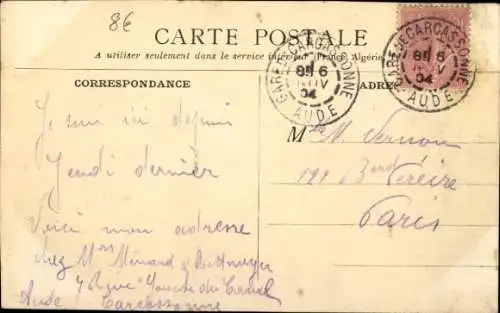 8€
CARTE POSTALE
A utiliser seulement dans le service intérieur (France, Algérie
CORRESPONDANCE
ADRES
GARE DE CARCASSONNE
8ᴱ 6
NOV
04
AUDE
GARE DE CARCASSONNE
8ᴱ 6
04
AUDE
Je suis ici depuis
Jeudi dernier
Voici mon adresse
chez Mrs Ménard &
4 Rue du Canal
Aude Carcassonne
M. Vernon
121 Bard Péreire
Paris